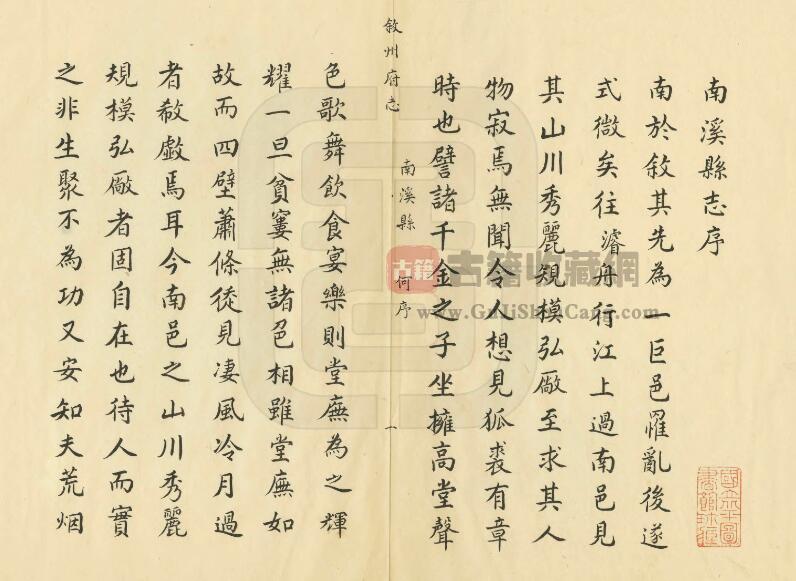 南溪縣志序
南於敘其先為一巨邑罹亂後遂
式微矣往濬舟行江上過南邑見
其山川秀麗規模弘廠至求其人
物寂焉無聞令人想見狐裘有章
時也譬諸千金之子坐擁高堂聲
敘州府志
南溪縣 何序 一
色歌舞飲食宴樂則堂廡為之輝
耀一旦貧窶無諸色相雖堂廡如
故而四壁蕭條徒見淒風冷月過
者欷歔焉耳今南邑之山川秀麗
規模弘廠者固自在也待人而實
之非生聚不為功又安知夫荒烟
古籍
古籍收藏網
www.GuJiShouCang.com